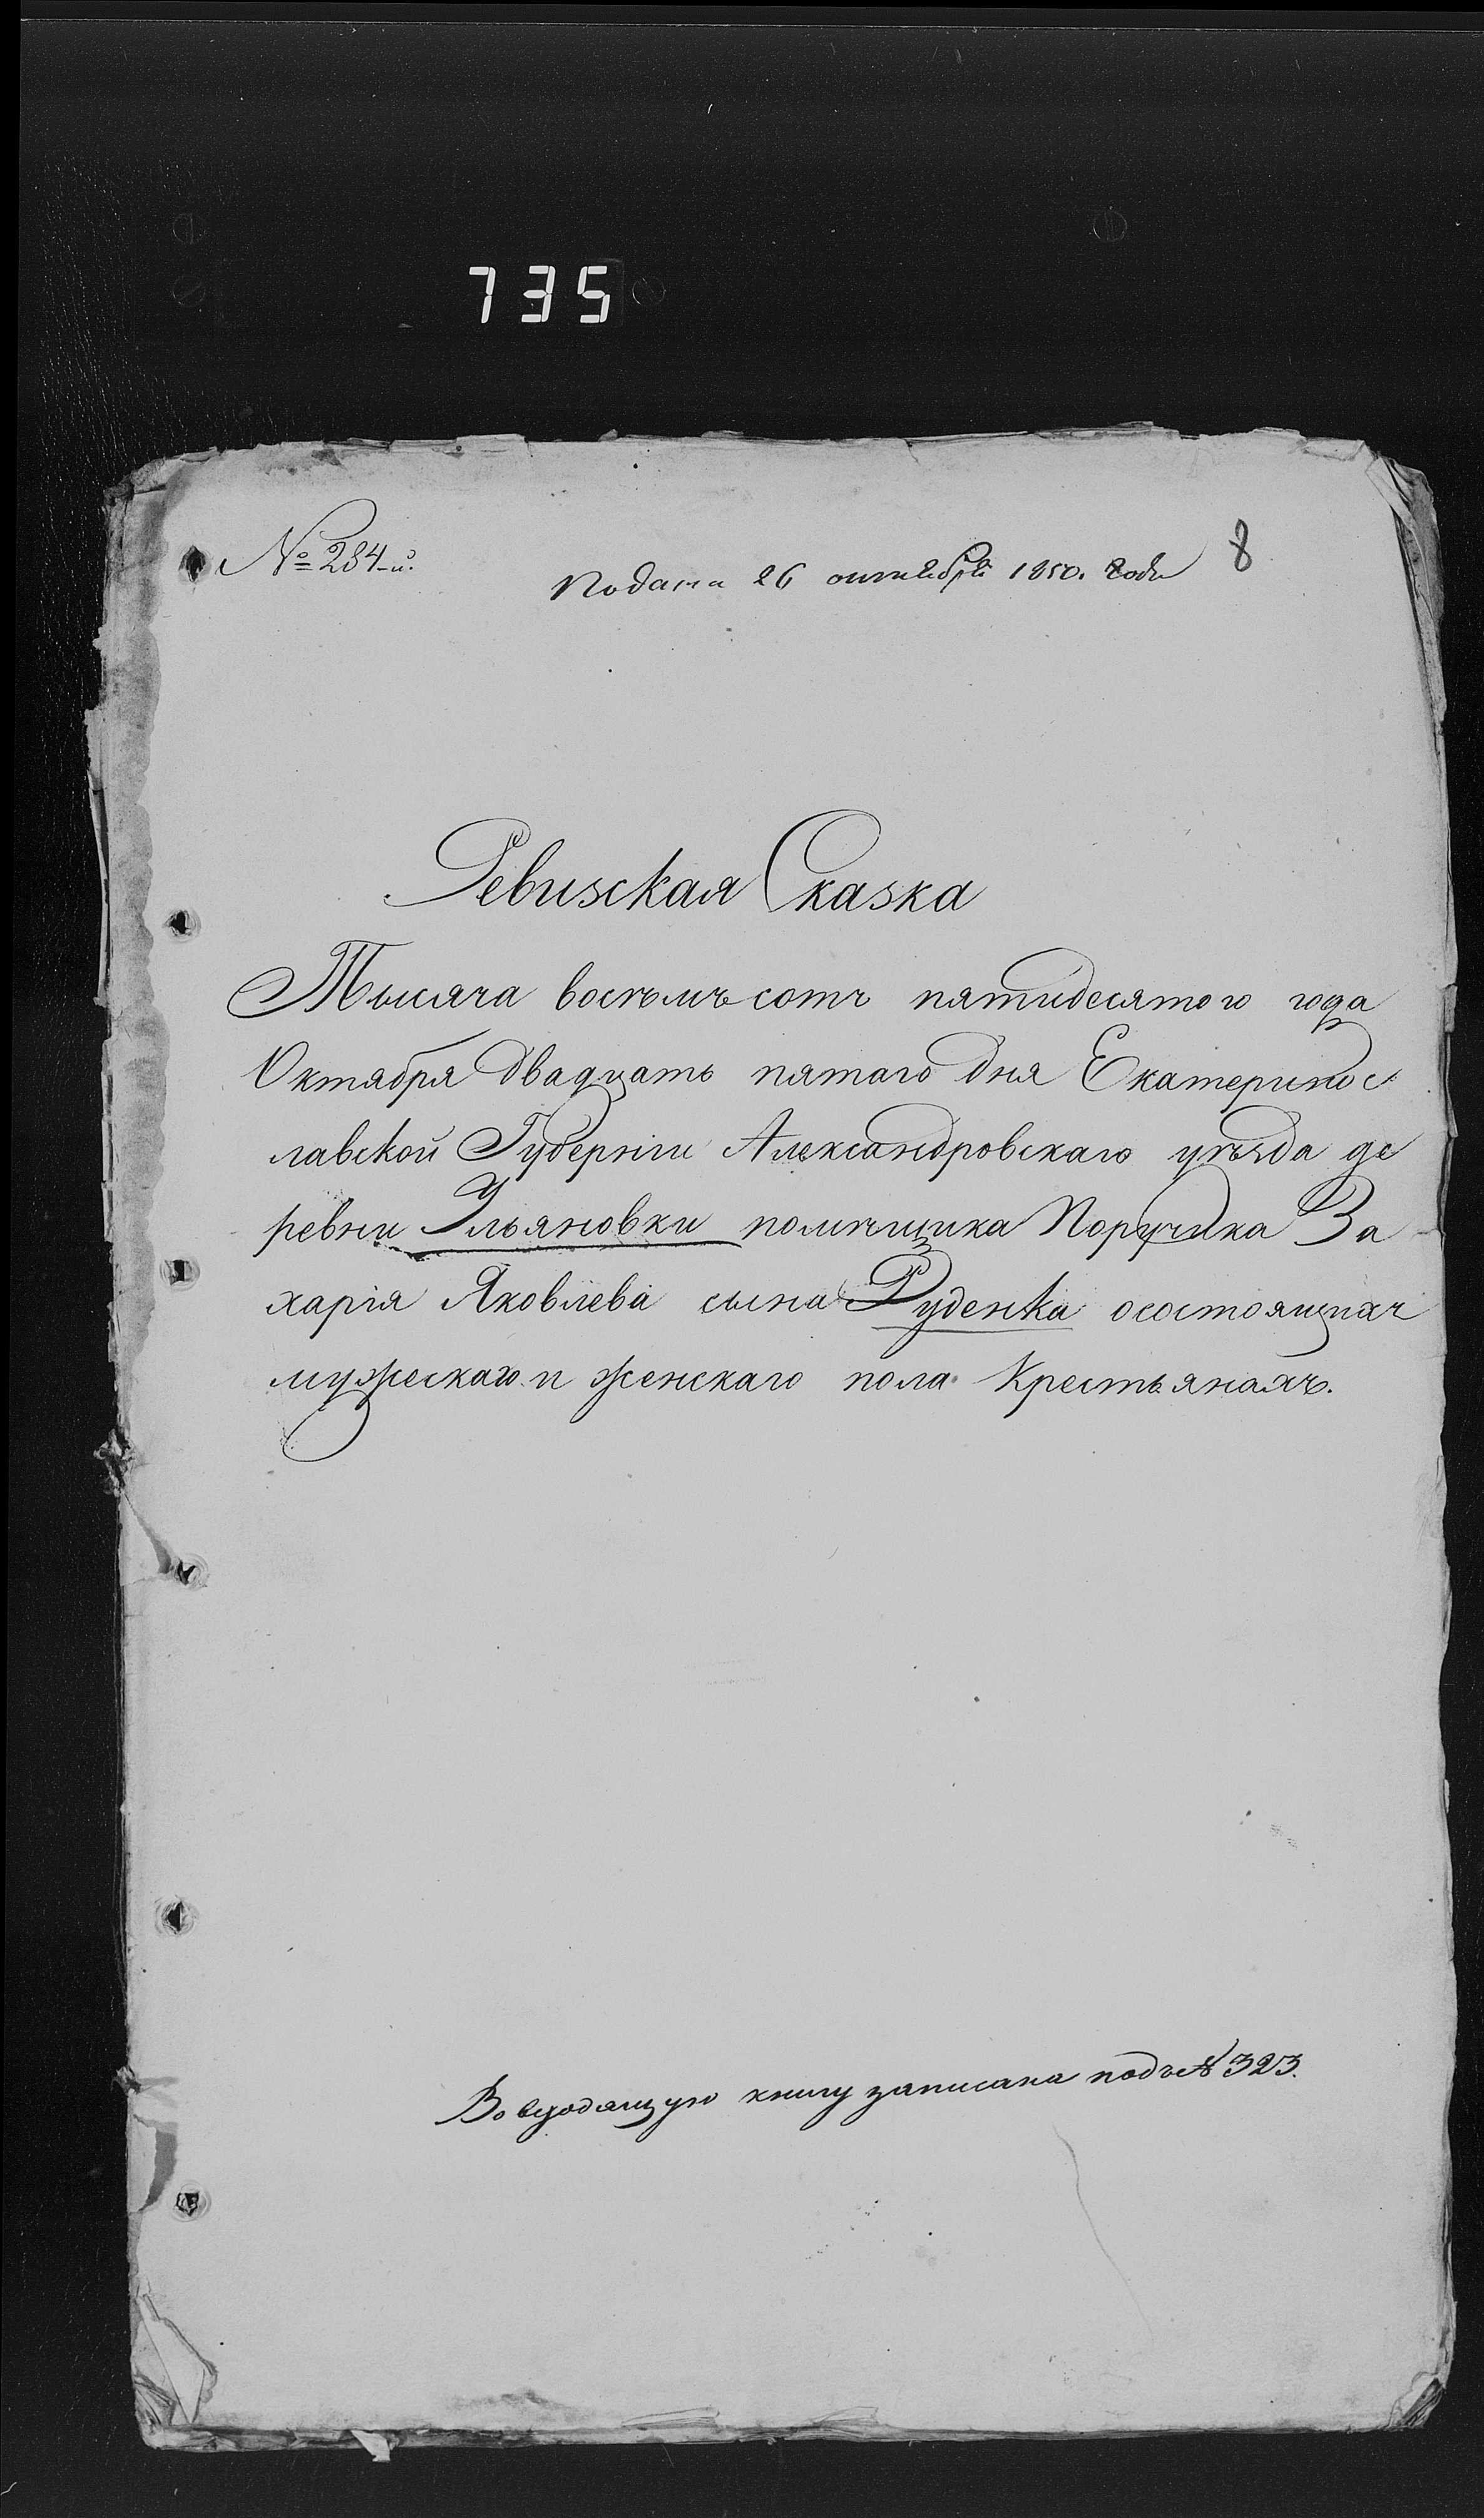 735
№ 284-й.
Подана 26 октября 1850. года
8
Ревизская Сказка
Тысяча восѣмъ сотъ пятидесятого года
Октября двадцать пятаго дня Екатеринос
лавской Губерніи Александровскаго уѣзда де
ревни Ульяновки помѣщика Поручика За
харія Яковлева сына Руденка осостоящихъ
мужескаго и женскаго пола Крестьянахъ.
Во входящую книгу записана подъ № 323.